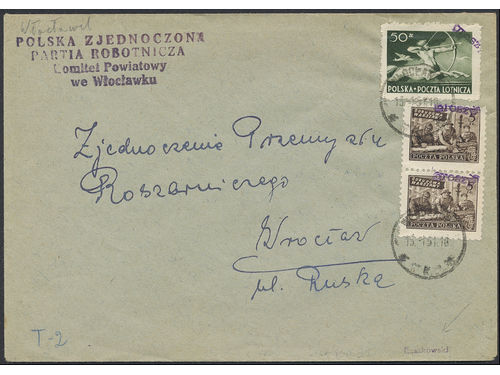 Włocławek
POLSKA ZJEDNOCZONA
PARTIA ROBOTNICZA
Komitet Powiatowy
we Włocławku
50 zł
POLSKA • POCZTA LOTNICZA
15.-1.51.18
5
POCZTA POLSKA
5
POCZTA POLSKA
15.-1.51.18
Zjednoczenie Przemysłu
Roszarniczego
Wrocław
ul. Ruska
T-2